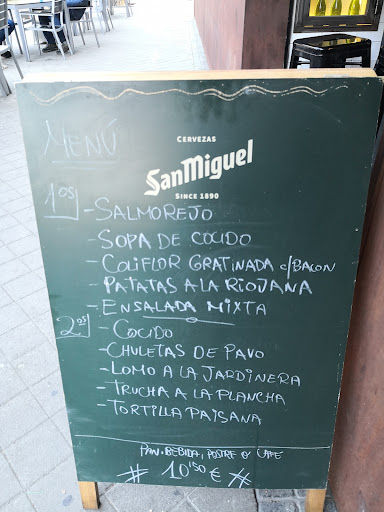 CERVEZAS
SanMiguel
SINCE 1890
MENÚ
1os -SALMOREJO
-SOPA DE COCIDO
-COLIFLOR GRATINADA c/BACON
-PATATAS A LA RIOJANA
-ENSALADA MIXTA
2os -COCIDO
-CHULETAS DE PAVO
-LOMO A LA JARDINERA
-TRUCHA A LA PLANCHA
-TORTILLA PAISANA
PAN, BEBIDA, POSTRE O CAFE
# 10'50 € #